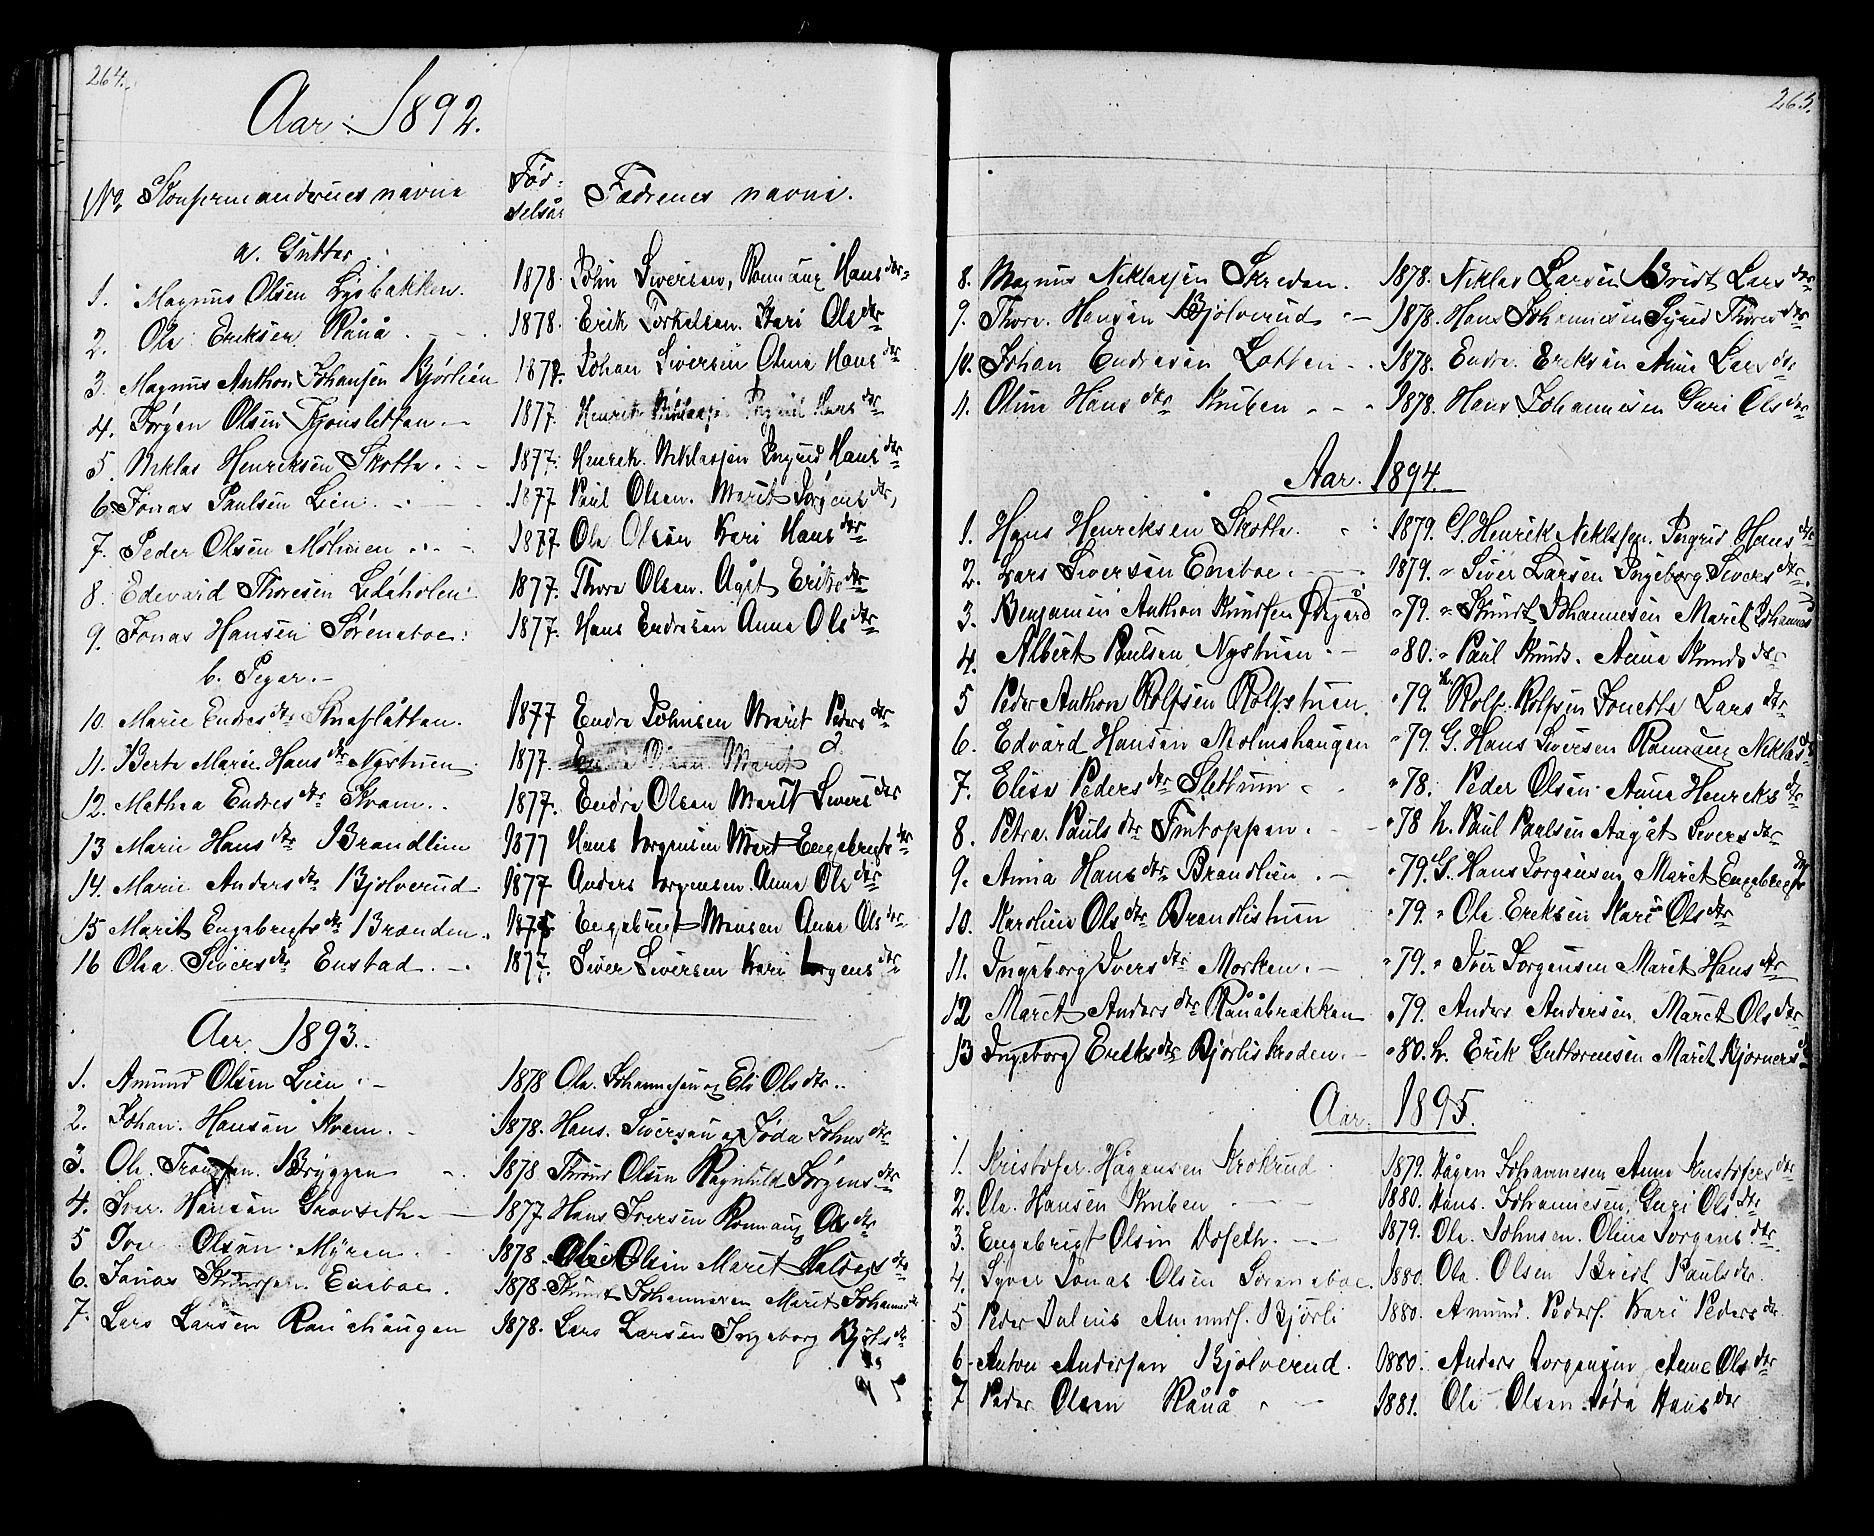 264.
Aar: 1892.
No Konfirmandernes navne Fød- Fædrenes navne.
selsår
a. Gutter.
1. Magnus Olsen Lysbakken. 1878. John Siversen, Rannaug Hansdtr
2. Ole Eriksen Rånå 1878. Erik Torkelsen. Kari Olsdtr
3. Magnus Anthon Johansen Bjørlien Johan Siversen Hansdtr
4. Jørgen Olsen 1877. Henrik Niklas Ingrid Hansdtr
5. Niklas Henriksen Skotte. 1877. Henrik Niklassen Ingrid Hansdtr
6. Jonas Paulsen Lien. 1877 Paul Olsen. Marit Jørgensdtr,
7. Peder Olsen Mølmen 1877 Ole Olsen Kari Hansdtr
8. Edevard Thoresen 1877. Thore Olsen. Agåt Eriksdtr
9. Jonas Hansen Sørenaboe: 1877. Hans Endresen Anna Olsdtr
b. Piger.
10. Marie Endresdtr 1877 Endre Johnsen Marit Pedersdtr
11. Berte Marie Hansdtr Nystuen 1877. Olsen Marit
12. Mathea Endresdtr Kvam. 1877. Endre Olsen Marit Siversdtr
13 Marie Hansdtr Brandlien 1877 Hans Jørgensen Marit Engebrigtsdtr
14. Marie Andersdtr Bjølverud. 1877 Anders Jørgensen. Anna Olsdtr
15 Marit Engebrigtsdtr Brænden. Engebrigt Monsen Anne Olsdtr
16 Olea Siversdtr Enstad. 1877. Siver Siversen Kari Jørgensdtr
Aar 1893.
1. Amund Olsen Lien 1878 Ole. Johannesen og Eli Olsdtr.
2. Johan. Hansen Kvam. 1878. Hans. Siversen og Jøda Johnsdtr
3. Ole. Bryggen 1878 Thrond Olsen Ragnhild Jørgensdtr
4. Iver. Hansen Gravseth. 1877 Hans Iversen Rannaug Olsdtr
5 Olsen Myren. 1878. Ole Olsen Marit Halvorsdtr
6. Jonas Knudsen Eneboe. 1878. Knut Johannesen Marit Johannesdtr
7. Lars Larsen Rånåhaugen 1878. Lars Larsen Ingeborg
265.
8. Magnus Niklassen Skreden. 1878. Niklas Larsen Brit Larsdtr
9. Thore. Hansen Bjølverud 1878. Hans Johannesen Syrid Thoresdtr
10. Johan Endresen Lotten 1878. Endre. Eriksen Anne Larsdtr
11. Oline Hansdtr Kruben 1878. Hans Johannesen Guri Olsdtr
Aar. 1894.
1. Hans Henriksen Skotte. 1879. G. Henrik Niklassen. Ingrid Hansdtr
2. Lars Siversen Eneboe. 1879. " Siver Larsen Ingeborg Siversdtr.
3. Benjamin Anthon Knudsen Ødegård " 79. " Knudt Johannesen Marit Johannesd
4. Albert Paulsen Nystuen " 80. " Paul Knuds. Anne Knudsdtr
5 Peder Anthon Rolfsen Rolfstuen. " 79. h. Rolf. Rolfsen Jonetta Larsdtr
6. Edvard Hansen Molmshaugen " 79. G. Hans Siversen Rannaug Niklasdtr
7. Elise Pedersdtr Slettum " 78. Peder Olsen Anne Henriksdtr
8. Petra. Paulsdtr Tmtoppen. " 78 h. Paul Paulsen Aagåt Siversdtr
9. Anna Hansdtr Brandlien. " 79. G. Hans Jørgensen Marit Engebrigtsdtr
10. Karoline Olsdtr Brandlistuen " 79. " Ole. Eriksen Kari Olsdtr
11. Ingeborg Iversdtr Morken. " 79. " Iver Jørgensen Marit Hansdtr
12 Marit Andersdtr Rånåbrækken " 79. Anders Andersen. Marit Olsdtr
13 Ingeborg Eriksdtr Bjørliskreden. " 80. h. Erik Guttormsen Marit Bjørnersd
Aar. 1895.
1. Kristofer. Hågensen Krokrud. 1879. Hågen Johannesen Anne Kristofersdtr
2. Ole. Hansen Kruben 1880. Hans. Johannesen, Guri Olsdtr
3. Engebrigt Olsen Doseth. 1879. Ole. Johnsen. Oline Jørgensdtr
4. Syver Jonas Olsen Sørenaboe 1880. Ole. Olsen Brit Paulsdtr.
5 Peder Julius Amunds. Bjørli 1880. Amund. Peders. Kari Pedersdtr
6. Anton Andersen Bjølverud. 1880. Anders Jørgensen Anne Olsdtr
7 Peder Olsen Rånå 1881. Ole Olsen Jøda Hansdtr